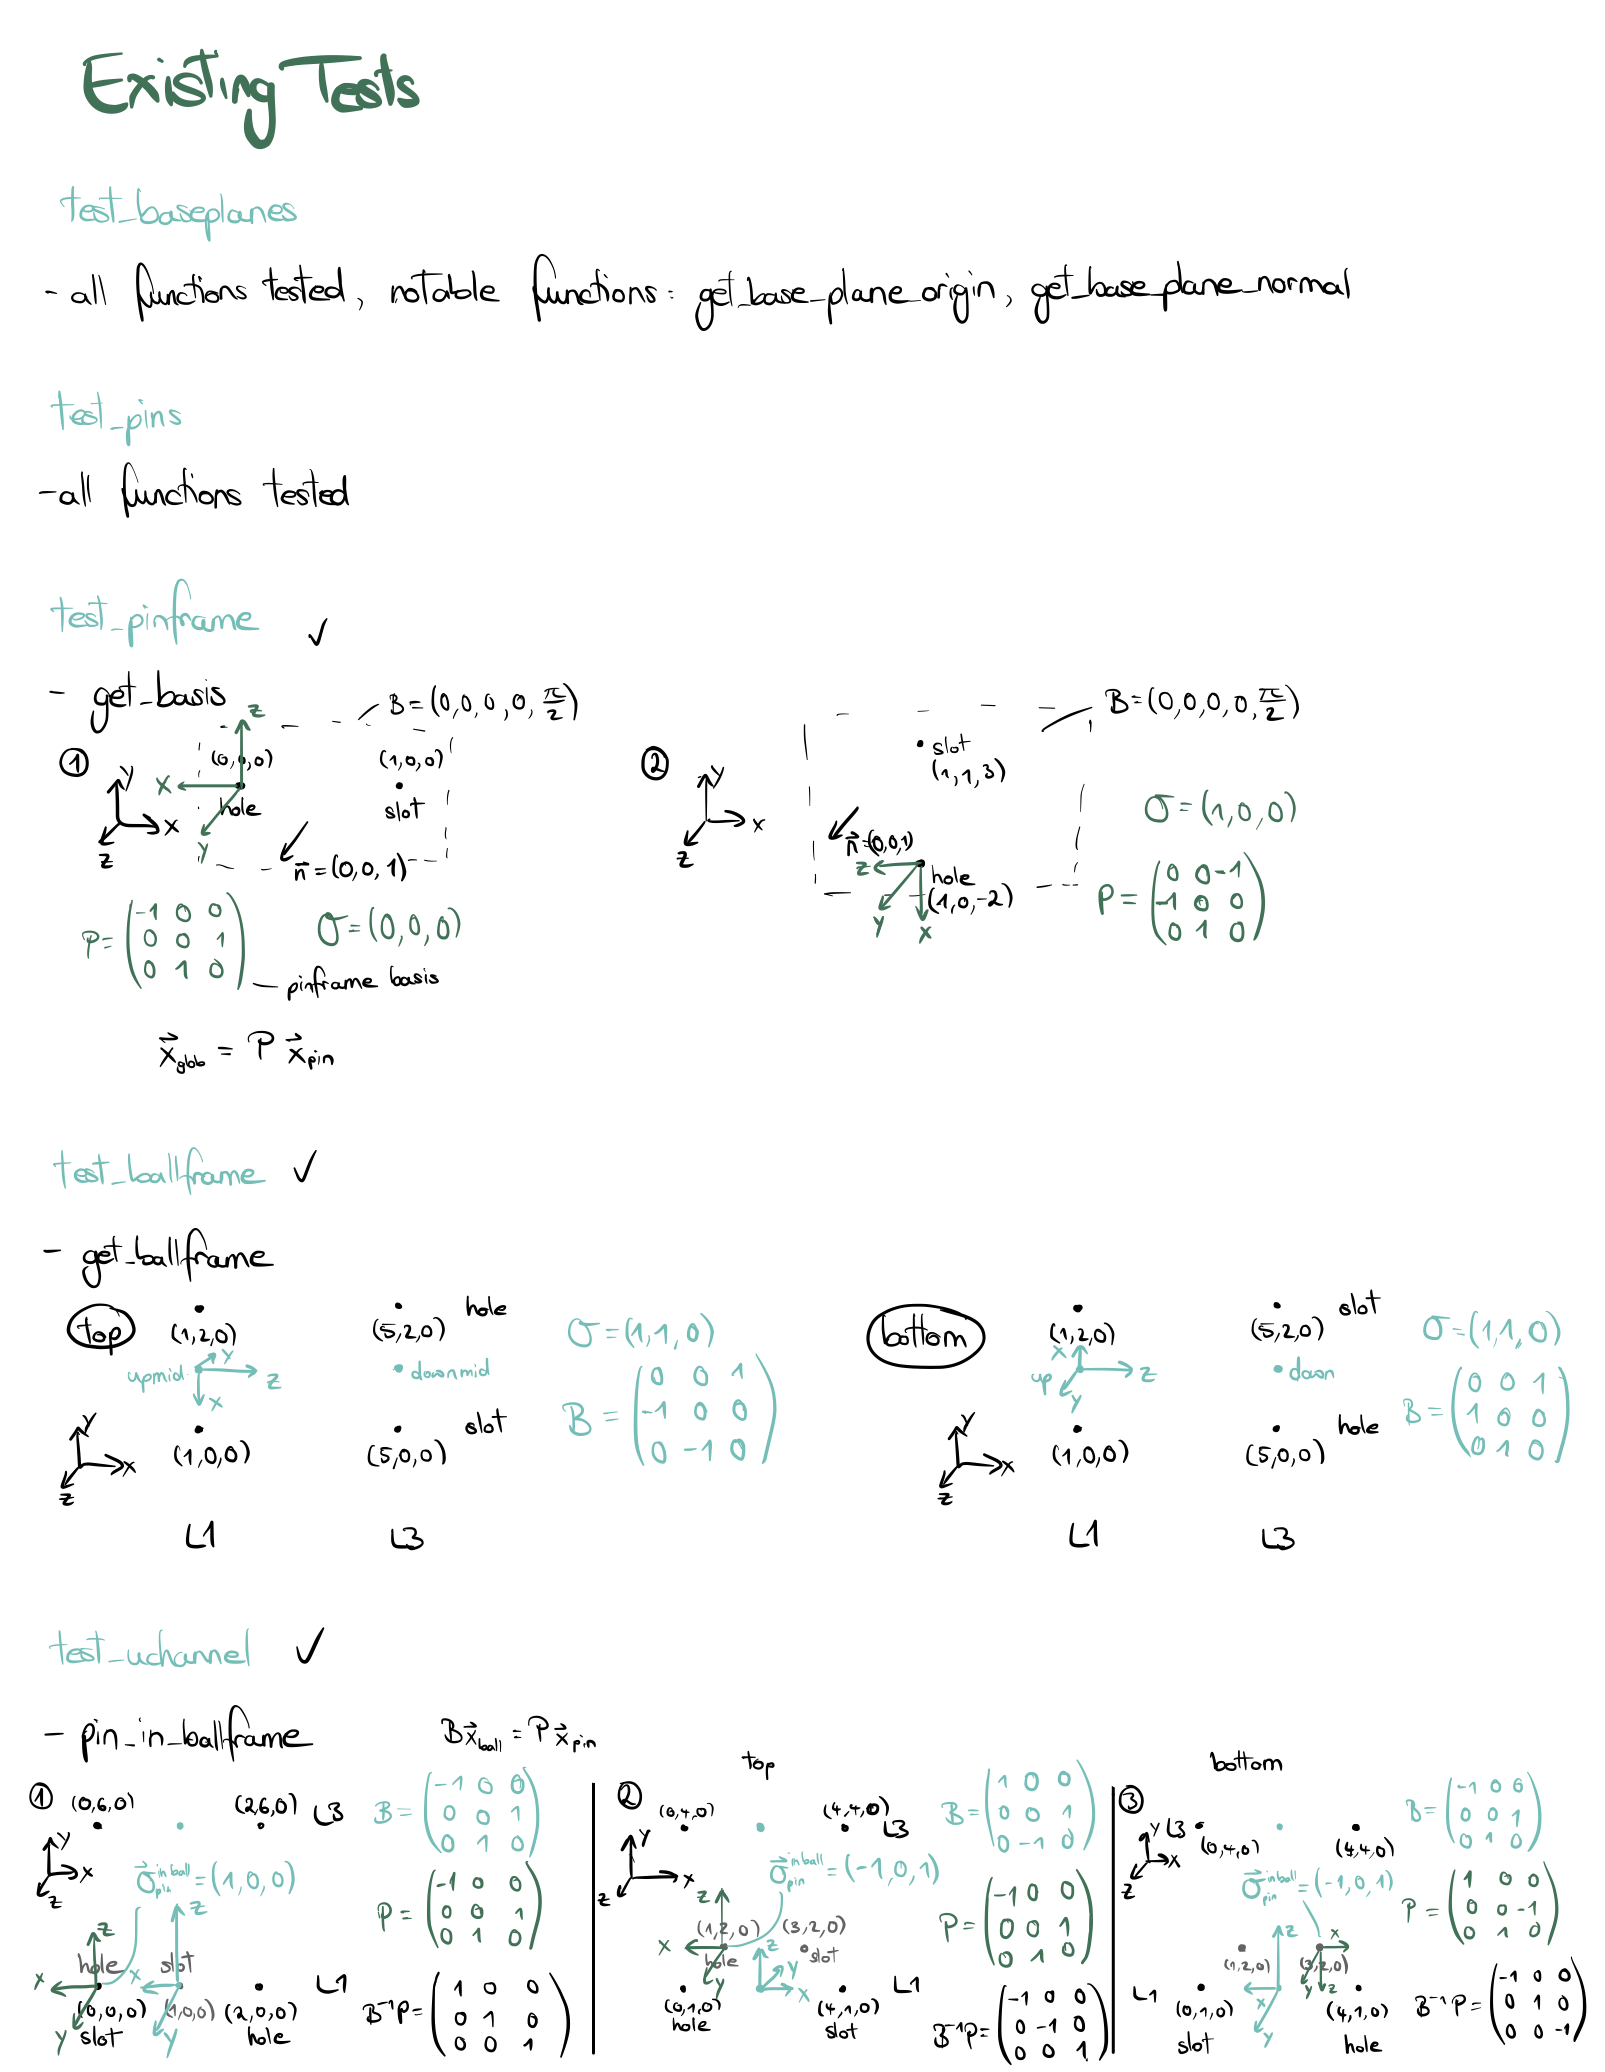 Existing Tests
test_baseplanes
- all functions tested, notable functions: get_base_plane_origin, get_base_plane_normal
test_pins
- all functions tested
test_pinframe ✓
- get_basis
①
B = (0,0,0,0,π/2)
z
(0,0,0)
(1,0,0)
y
x
x
hole
slot
z
y
n⃗ = (0,0,1)
P = (-1 0 0
0 0 1
0 1 0)
σ = (0,0,0)
pinframe basis
x⃗glob = P x⃗pin
②
B = (0,0,0,0,π/2)
slot
(1,1,3)
y
x
z
n⃗ = (0,0,1)
z
hole
(1,0,-2)
y
x
σ = (1,0,0)
P = (0 0 -1
-1 0 0
0 1 0)
test_ballframe ✓
- get_ballframe
top
(1,2,0)
(5,2,0)
hole
y
upmid
z
x
downmid
y
x
z
(1,0,0)
(5,0,0)
slot
L1
L3
σ = (1,1,0)
B = (0 0 1
-1 0 0
0 -1 0)
bottom
(1,2,0)
(5,2,0)
slot
x
up
z
y
down
y
x
z
(1,0,0)
(5,0,0)
hole
L1
L3
σ = (1,1,0)
B = (0 0 1
1 0 0
0 1 0)
test_uchannel ✓
- pin_in_ballframe
Bx⃗ball = Px⃗pin
①
(0,6,0)
(2,6,0)
L3
y
x
z
σ⃗pin in ball = (1,0,0)
z
z
hole
slot
x
x
(0,0,0)
(1,0,0)
(2,0,0)
L1
y
slot
y
hole
B = (-1 0 0
0 0 1
0 1 0)
P = (-1 0 0
0 0 1
0 1 0)
B⁻¹P = (1 0 0
0 1 0
0 0 1)
②
top
(0,4,0)
(4,4,0)
L3
y
x
z
σ⃗pin in ball = (-1,0,1)
z
(1,2,0)
(3,2,0)
x
hole
slot
y
z
y
x
(0,1,0)
hole
(4,1,0)
slot
L1
B = (1 0 0
0 0 1
0 -1 0)
P = (-1 0 0
0 0 1
0 1 0)
B⁻¹P = (-1 0 0
0 -1 0
0 0 1)
③
bottom
y
L3
(0,4,0)
(4,4,0)
x
z
σ⃗pin in ball = (-1,0,1)
z
x
(1,2,0)
(3,2,0)
y
z
L1
(0,1,0)
x
y
(4,1,0)
slot
hole
B = (-1 0 0
0 0 1
0 1 0)
P = (1 0 0
0 0 -1
0 1 0)
B⁻¹P = (-1 0 0
0 1 0
0 0 -1)